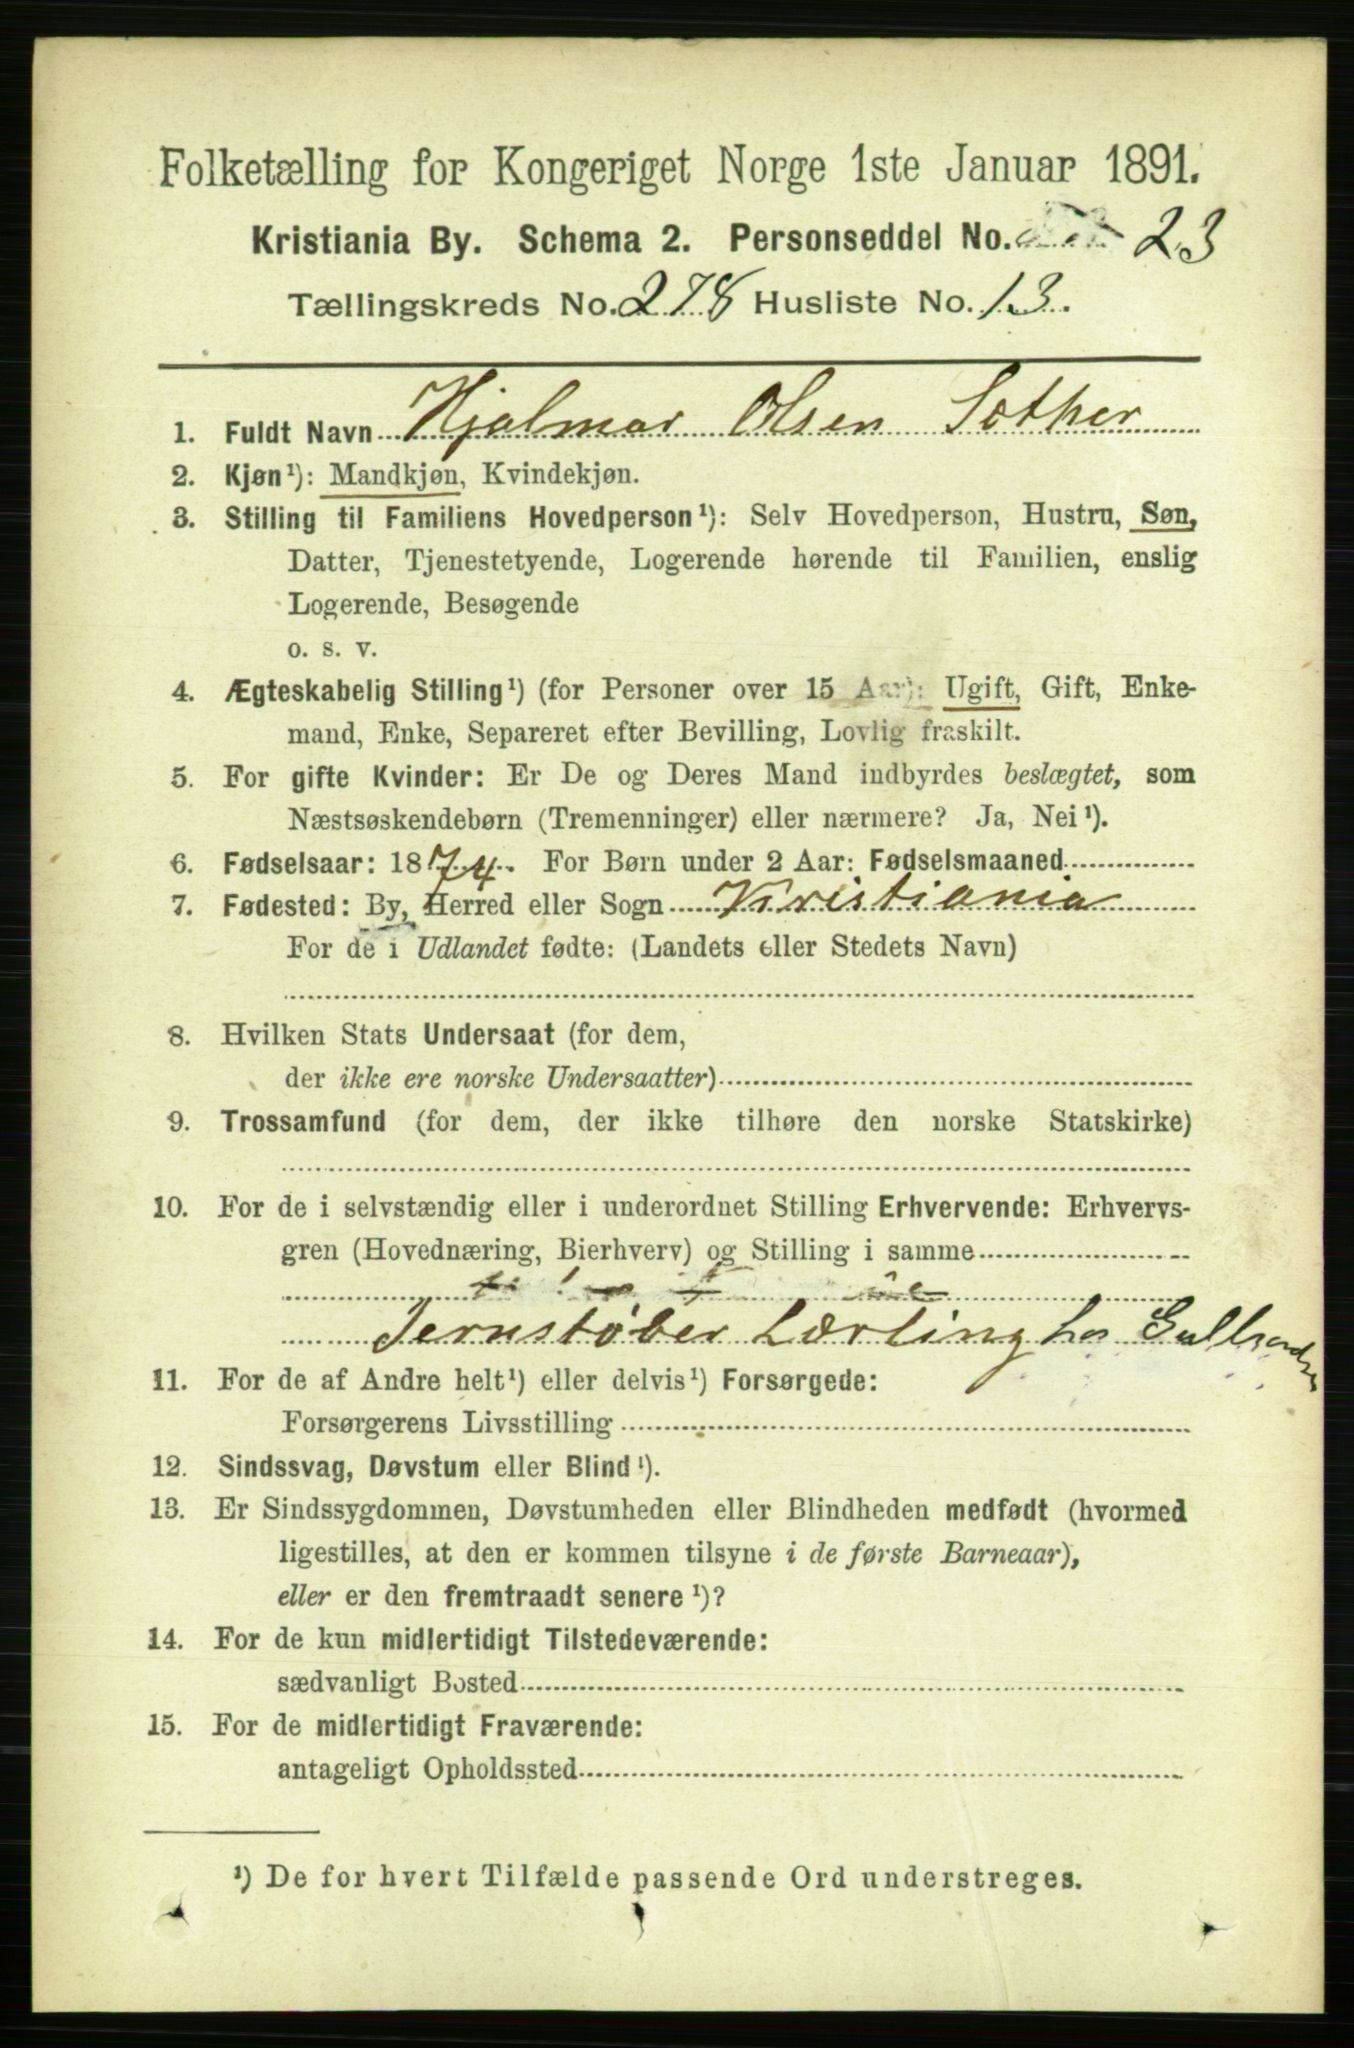 Folketælling for Kongeriget Norge 1ste Januar 1891.
Kristiania By. Schema 2. Personseddel No. 23
Tællingskreds No. 278 Husliste No. 13.
1. Fuldt Navn Hjalmar Olsen Sother
2. Kjøn¹): Mandkjøn, Kvindekjøn.
3. Stilling til Familiens Hovedperson¹): Selv Hovedperson, Hustru, Søn,
Datter, Tjenestetyende, Logerende hørende til Familien, enslig
Logerende, Besøgende
o. s. v.
4. Ægteskabelig Stilling¹) (for Personer over 15 Aar): Ugift, Gift, Enke-
mand, Enke, Separeret efter Bevilling, Lovlig fraskilt.
5. For gifte Kvinder: Er De og Deres Mand indbyrdes beslægtet, som
Næstsøskendebørn (Tremenninger) eller nærmere? Ja, Nei¹).
6. Fødselsaar: 1874. For Børn under 2 Aar: Fødselsmaaned
7. Fødested: By, Herred eller Sogn Kristiania
For de i Udlandet fødte: (Landets eller Stedets Navn)
8. Hvilken Stats Undersaat (for dem,
der ikke ere norske Undersaatter)
9. Trossamfund (for dem, der ikke tilhøre den norske Statskirke)
10. For de i selvstændig eller i underordnet Stilling Erhvervende: Erhvervs-
gren (Hovednæring, Bierhverv) og Stilling i samme
Jernstøber Lærling hos
11. For de af Andre helt¹) eller delvis¹) Forsørgede:
Forsørgerens Livsstilling
12. Sindssvag, Døvstum eller Blind¹).
13. Er Sindssygdommen, Døvstumheden eller Blindheden medfødt (hvormed
ligestilles, at den er kommen tilsyne i de første Barneaar),
eller er den fremtraadt senere¹)?
14. For de kun midlertidigt Tilstedeværende:
sædvanligt Bosted
15. For de midlertidigt Fraværende:
antageligt Opholdssted
¹) De for hvert Tilfælde passende Ord understreges.